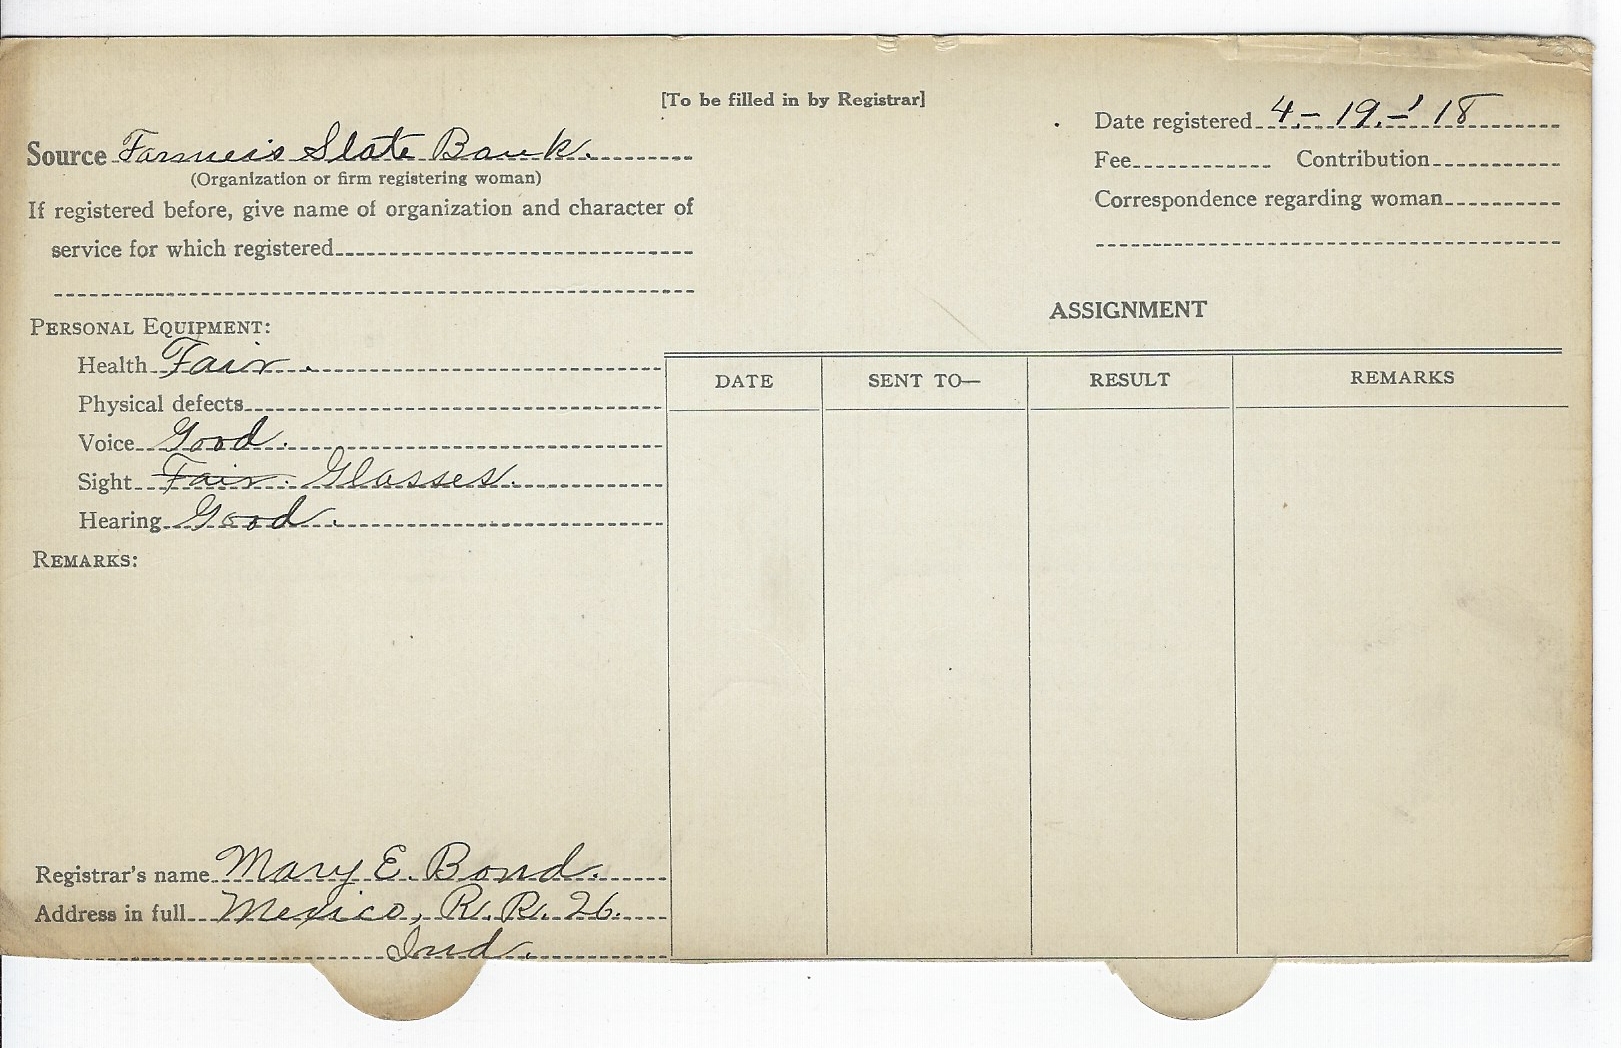 [To be filled in by Registrar]
Source Farmer's State Bank.
(Organization or firm registering woman)
If registered before, give name of organization and character of
service for which registered
Date registered 4-19-'18
Fee Contribution
Correspondence regarding woman
PERSONAL EQUIPMENT:
Health Fair.
Physical defects
Voice Good.
Sight Fair. Glasses.
Hearing Good.
REMARKS:
ASSIGNMENT
DATE SENT TO— RESULT REMARKS
Registrar's name Mary E. Bond.
Address in full Mexico, R.R. 26.
Ind.